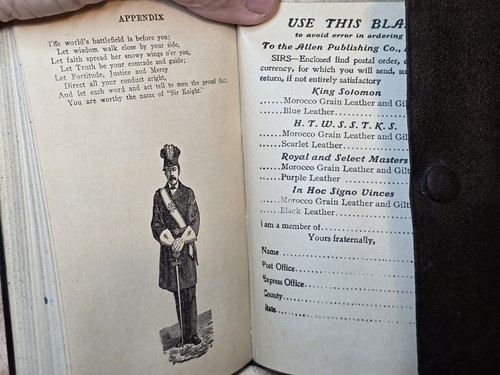 APPENDIX
The world's battlefield is before you;
Let wisdom walk close by your side,
Let faith spread her snowy wings o'er you,
Let Truth be your comrade and guide;
Let Fortitude, Justice and Mercy
Direct all your conduct aright,
And let each word and act tell to men the proud fact,
You are worthy the name of "Sir Knight."
USE THIS BLA
to avoid error in ordering
To the Allen Publishing Co.,
SIRS—Enclosed find postal order,
currency, for which you will send,
return, if not entirely satisfactory
King Solomon
......Morocco Grain Leather and Gil
......Blue Leather
H. T. W. S. S. T. K. S.
......Morocco Grain Leather and Gil
......Scarlet Leather
Royal and Select Masters
......Morocco Grain Leather and Gilt
......Purple Leather
In Hoc Signo Vinces
......Morocco Grain Leather and Gilt
......Black Leather
I am a member of
Yours fraternally,
Name
Post Office
Express Office
County
State